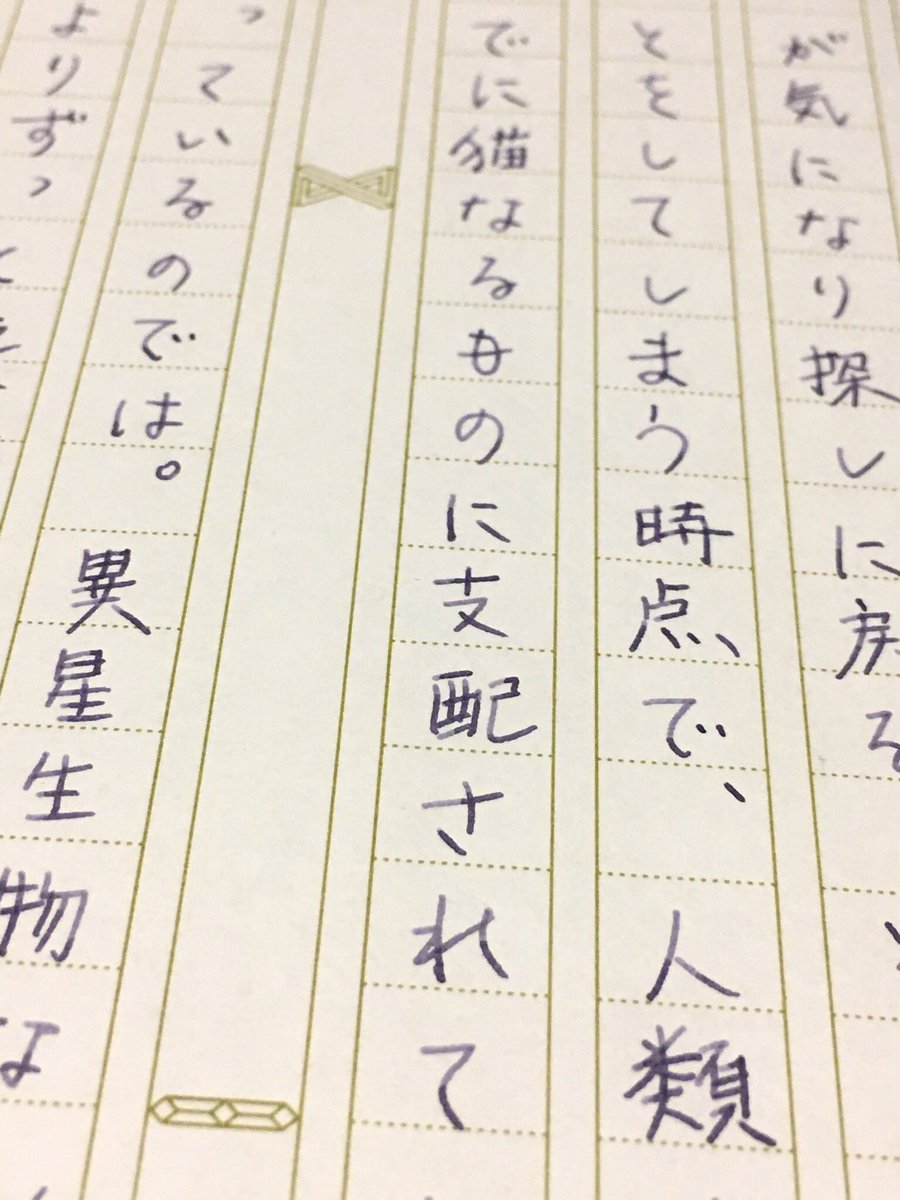 が気になり探しに戻る
とをしてしまう時点で、人類
でに猫なるものに支配されて
っているのでは。異星生物な
よりずっ